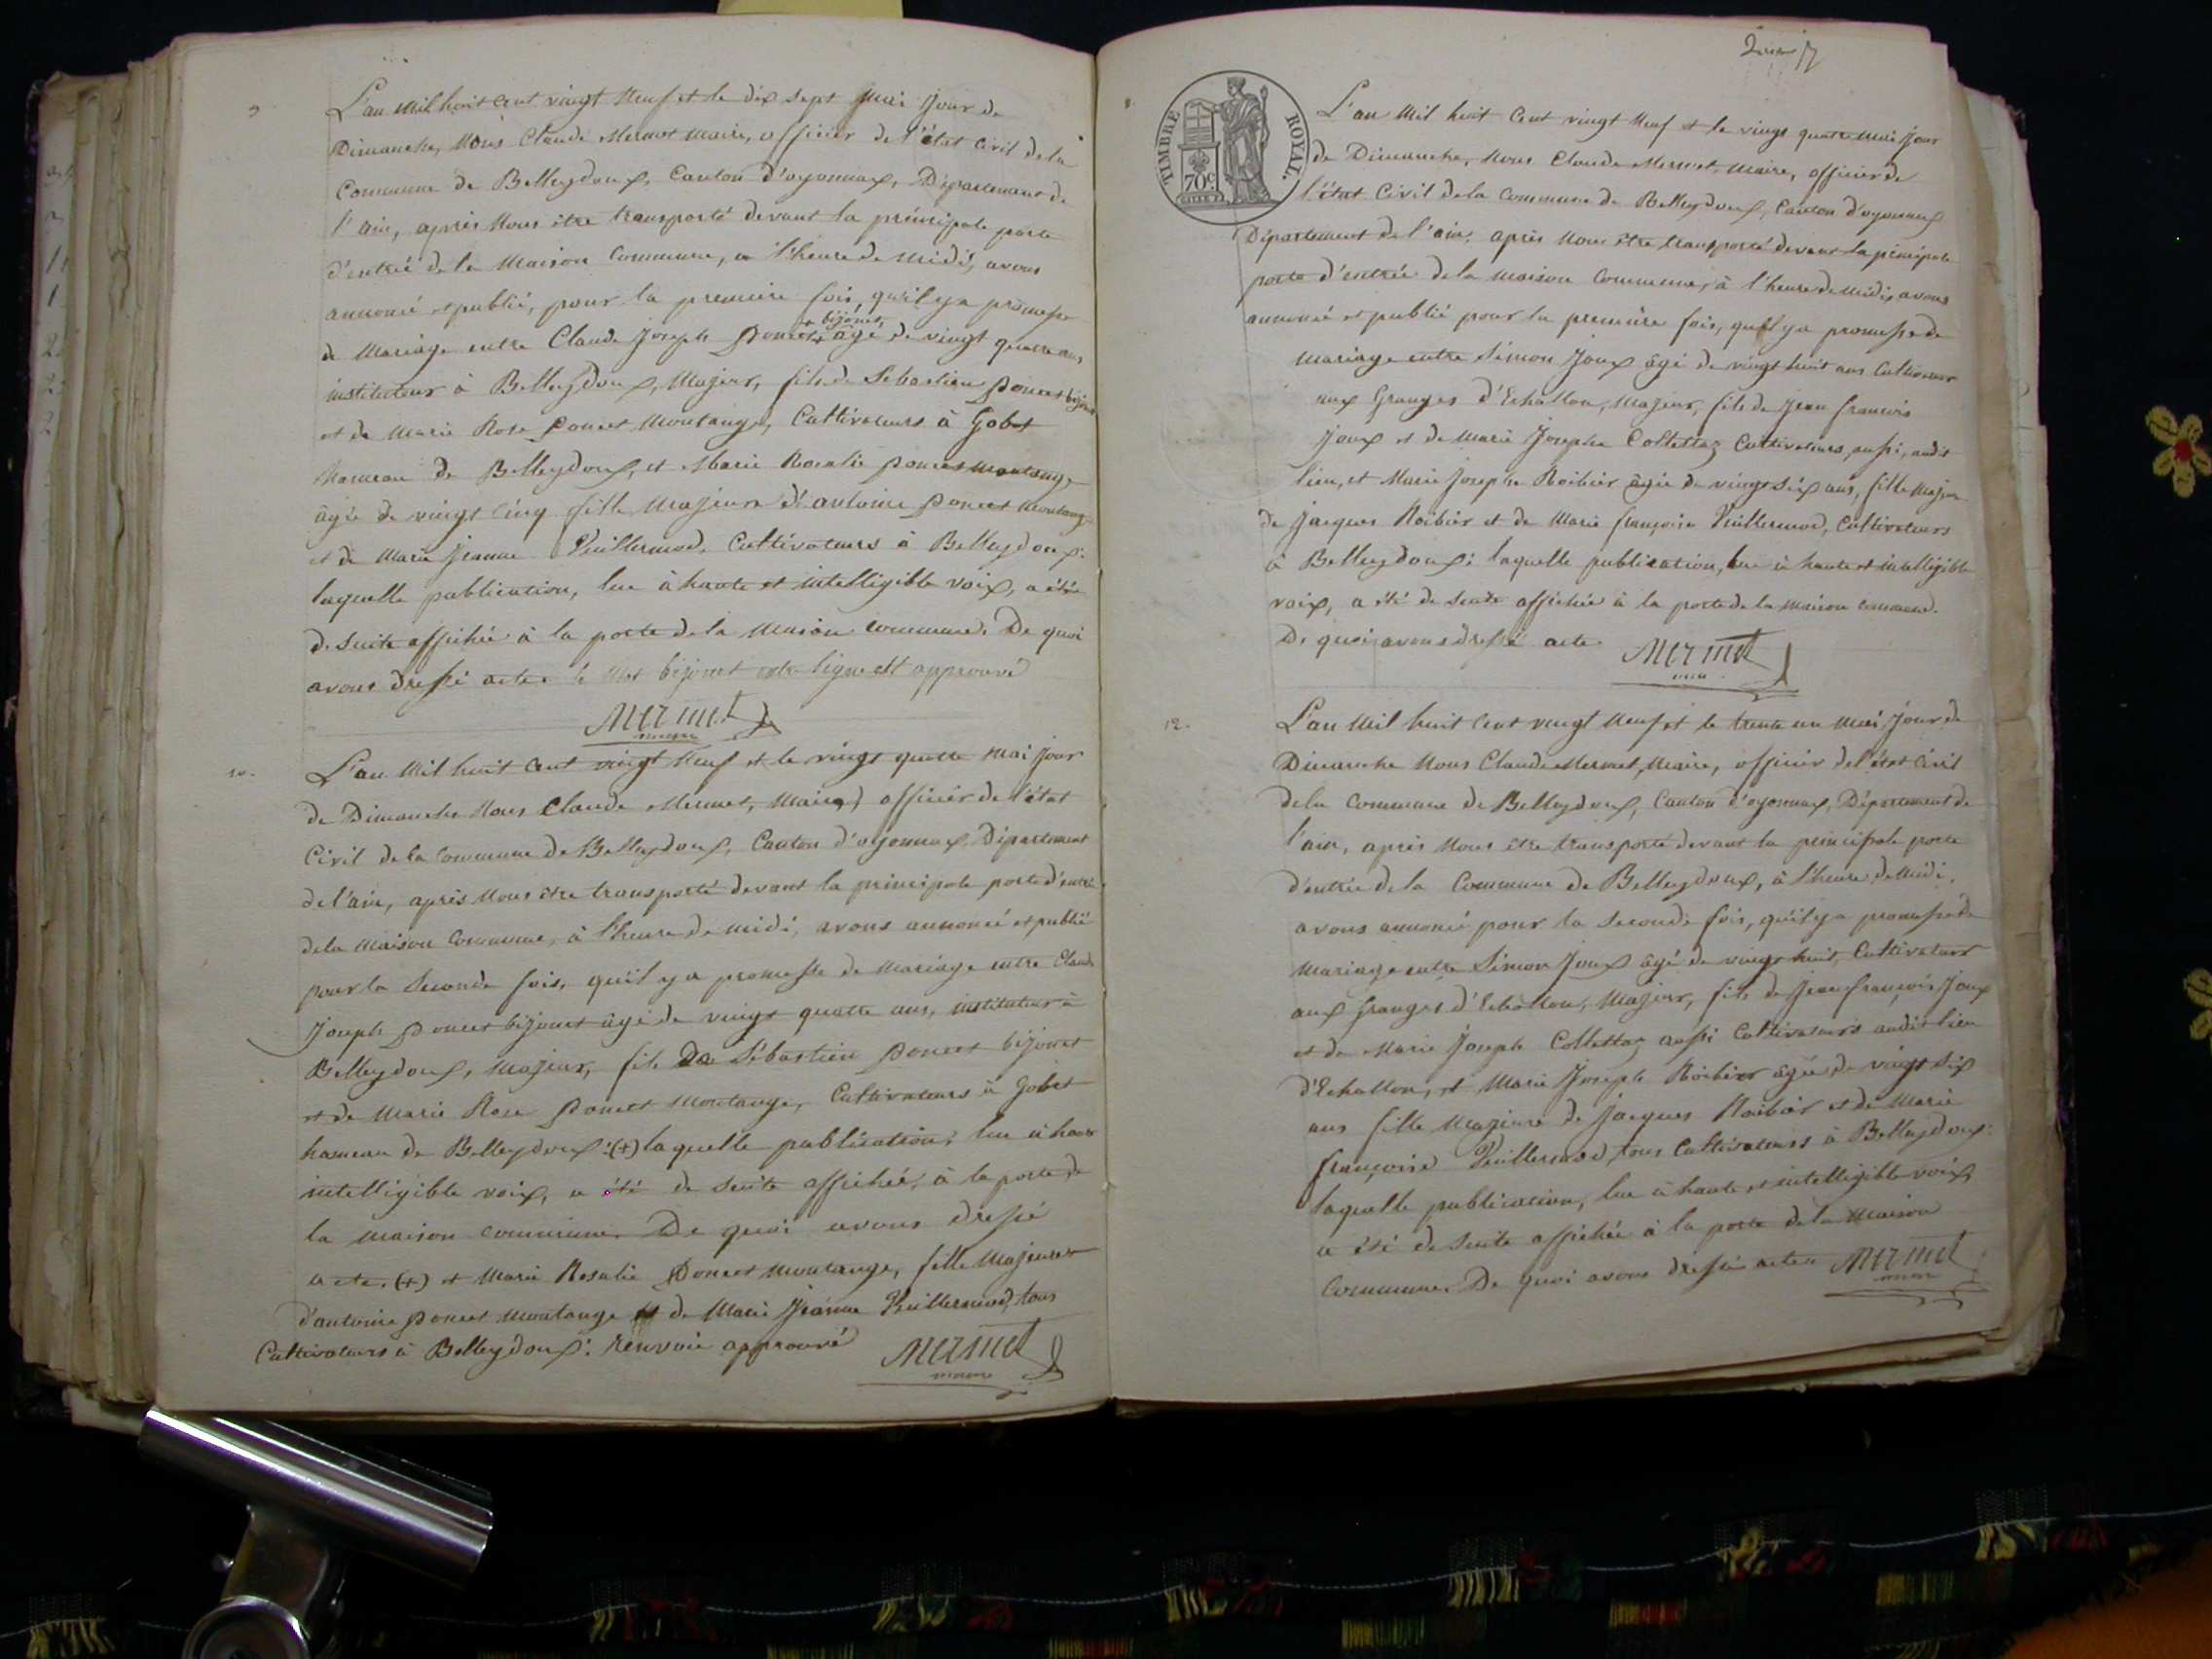 9
L'an Mil huit Cent vingt Neuf et le dix Sept Mai Jour de
Dimanche, Nous Claude Mermet Maire, officier de l'état Civil de la
Commune de Belleydoux, Canton d'oyonnax, Département de
l'ain, après Nous être transporté devant la principale porte
d'entrée de la Maison Commune, a l'heure de Midi, avons
annoncé et publié, pour la première fois, qu'il y a promesse
+ bijouet,
de Mariage entre Claude Joseph Poncet + âgé de vingt quatre ans,
instituteur à Belleydoux, Majeur, fils de Sébastien Poncet bijouet
et de Marie Rose Poncet Montange, Cultivateurs à Gobet
hameau de Belleydoux, et Marie Rosalie Poncet Montange
âgée de vingt Cinq fille Majeure d'antoine Poncet Montange
et de Marie Jeanne Vuillermod, Cultivateurs à Belleydoux:
laquelle publication, lue à haute et intelligible voix, a été
de Suite affichée à la porte de la Maison Commune. De quoi
avons dressé acte. le Mot bijouet entre ligne est approuvé
Mermet
maire
10.
L'an Mil huit Cent vingt Neuf et le vingt quatre Mai Jour
de Dimanche Nous Claude Mermet, Maire, officier de l'état
Civil de la Commune de Belleydoux, Canton d'oyonnax, Département
de l'ain, après Nous être transporté devant la principale porte d'entrée
de la Maison Commune, à l'heure de Midi, avons annoncé et publié
pour la Seconde fois, qu'il y a promesse de Mariage entre Claude
Joseph Poncet bijouet âgé de vingt quatre ans, instituteur à
Belleydoux, Majeur, fils De Sébastien Poncet bijouet
et de Marie Rose Poncet Montange, Cultivateurs à Gobet
hameau de Belleydoux: (+) laquelle publication, lue à haute
intelligible voix, a été de Suite affichée, à la porte de
la Maison Commune. De quoi avons dressé
acte. (+) et Marie Rosalie Poncet Montange, fille Majeure
d'antoine Poncet Montange et de Marie Jeanne Vuillermod, tous
Cultivateurs à Belleydoux: renvoie approuvé
Mermet
maire
TIMBRE ROYAL.
70c
L'an Mil huit Cent vingt Neuf et le vingt quatre Mai Jour
de Dimanche, Nous Claude Mermet, Maire, officier de
l'état Civil de la Commune de Belleydoux, Canton d'oyonnax
Département de l'ain, après Nous être transporté devant la principale
porte d'entrée de la Maison Commune, à l'heure de Midi, avons
annoncé et publié pour la première fois, qu'il y a promesse de
Mariage entre Simon Joux âgé de vingt huit ans Cultivateur
aux Granges d'Echallon, Majeur, fils de Jean francois
Joux et de Marie Josephe Collettaz Cultivateurs, aussi, audit
lieu, et Marie Josephe Roibier âgée de vingt Six ans, fille Majeure
de Jacques Roibier et de Marie françoise Vuillermod, Cultivateurs
à Belleydoux: laquelle publication, lue à haute et intelligible
voix, a été de Suite affichée à la porte de la Maison Commune.
De quoi avons dressé acte
Mermet
maire
12.
L'an Mil huit Cent vingt Neuf et le trente un Mai Jour de
Dimanche Nous Claude Mermet, Maire, officier de l'état Civil
de la Commune de Belleydoux, Canton d'oyonnax, Département de
l'ain, après Nous être transporté devant la principale porte
d'entrée de la Commune de Belleydoux, à l'heure de Midi,
avons annoncé pour la Seconde fois, qu'il y a promesse de
Mariage entre Simon Joux âgé de vingt huit, Cultivateur
aux Granges d'Echallon, Majeur, fils de Jean françois Joux
et de Marie Joseph Collettaz aussi Cultivateurs audit lieu
d'Echallon, et Marie Joseph Roibier âgée de vingt Six
ans fille Majeure de Jacques Roibier et de Marie
françoise Vuillermod, tous Cultivateurs à Belleydoux:
laquelle publication, lue à haute et intelligible voix,
a été de Suite affichée à la porte de la Maison
Commune. De quoi avons dressé acte
Mermet
maire